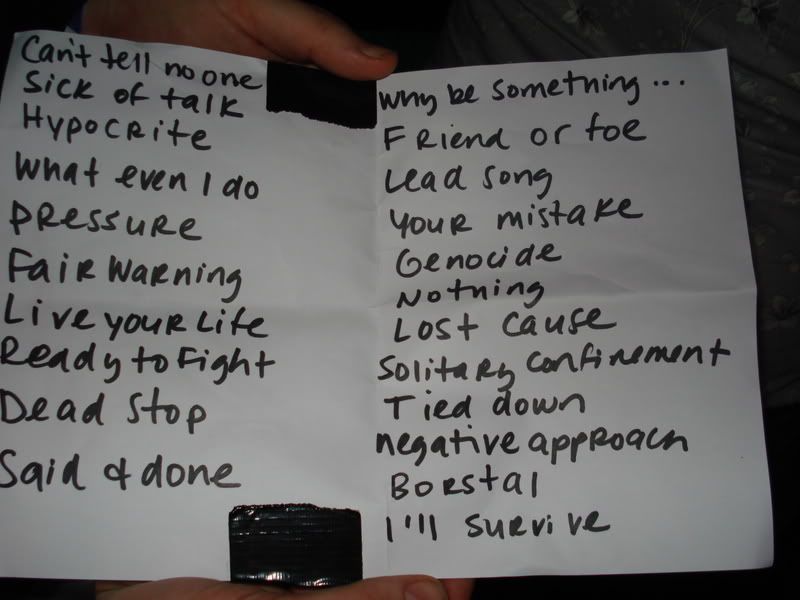 Can't tell no one
Sick of talk
Hypocrite
What even I do
Pressure
Fair Warning
Live your Life
Ready to Fight
Dead Stop
Said & done
Why be something...
Friend or foe
Lead song
Your mistake
Genocide
Nothing
Lost cause
Solitary confinement
Tied down
negative approach
Borstal
I'll survive